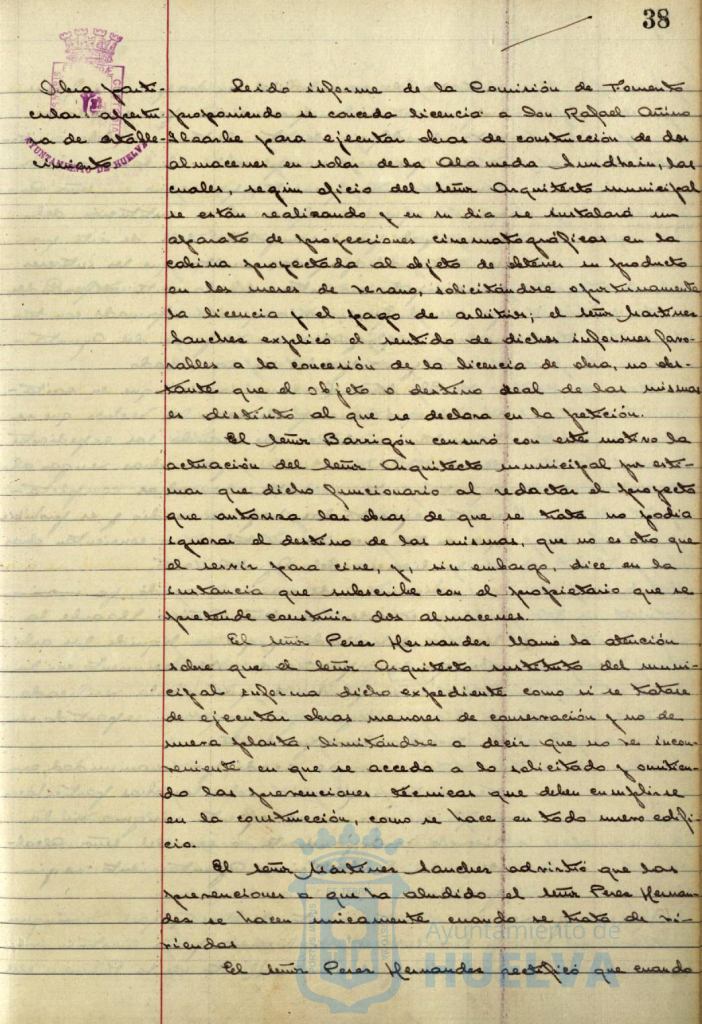 38
Obra parti-
cular apertu-
ra de estable-
cimiento
AYUNTAMIENTO DE HUELVA
Leido informe de la Comisión de Fomento
proponiendo se conceda licencia a Don Rafael
para ejecutar obras de construcción de dos
almacenes en solar de la Alameda Sundhein, las
cuales, según oficio del Señor Arquitecto municipal
se están realizando y en su dia se instalará un
aparato de proyecciones cinematográficas en la
cabina proyectada al objeto de obtener un producto
en los meses de verano, solicitándose oportunamente
la licencia y el pago de arbitrios; el señor Martinez
Sanchez explicó el sentido de dichos informes favo-
rables a la concesión de la licencia de obra, no obs-
tante que el objeto o destino real de las mismas
es distinto al que se declara en la petición.
El Señor Barrigón censuró con este motivo la
actuación del Señor Arquitecto municipal por esti-
mar que dicho funcionario al redactar el proyecto
que autoriza las obras de que se trata no podia
ignorar el destino de las mismas, que no es otro que
el servir para cine, y, sin embargo, dice en la
instancia que subscribe con el propietario que se
pretende construir dos almacenes.
El Señor Perez Hernandez llamó la atención
sobre que el Señor Arquitecto sustituto del muni-
cipal informa dicho expediente como si se tratase
de ejecutar obras menores de conservación y no de
nueva planta, limitándose a decir que no ve incon-
veniente en que se acceda a lo solicitado y omitien-
do las prevenciones técnicas que deben cumplirse
en la construcción, como se hace en todo nuevo edifi-
cio.
El Señor Martinez Sanchez advirtió que las
prevenciones a que ha aludido el Señor Perez Hernan-
dez se hacen unicamente cuando se trata de vi-
viendas
El Señor Perez Hernandez rectificó que cuando
Ayuntamiento de
HUELVA